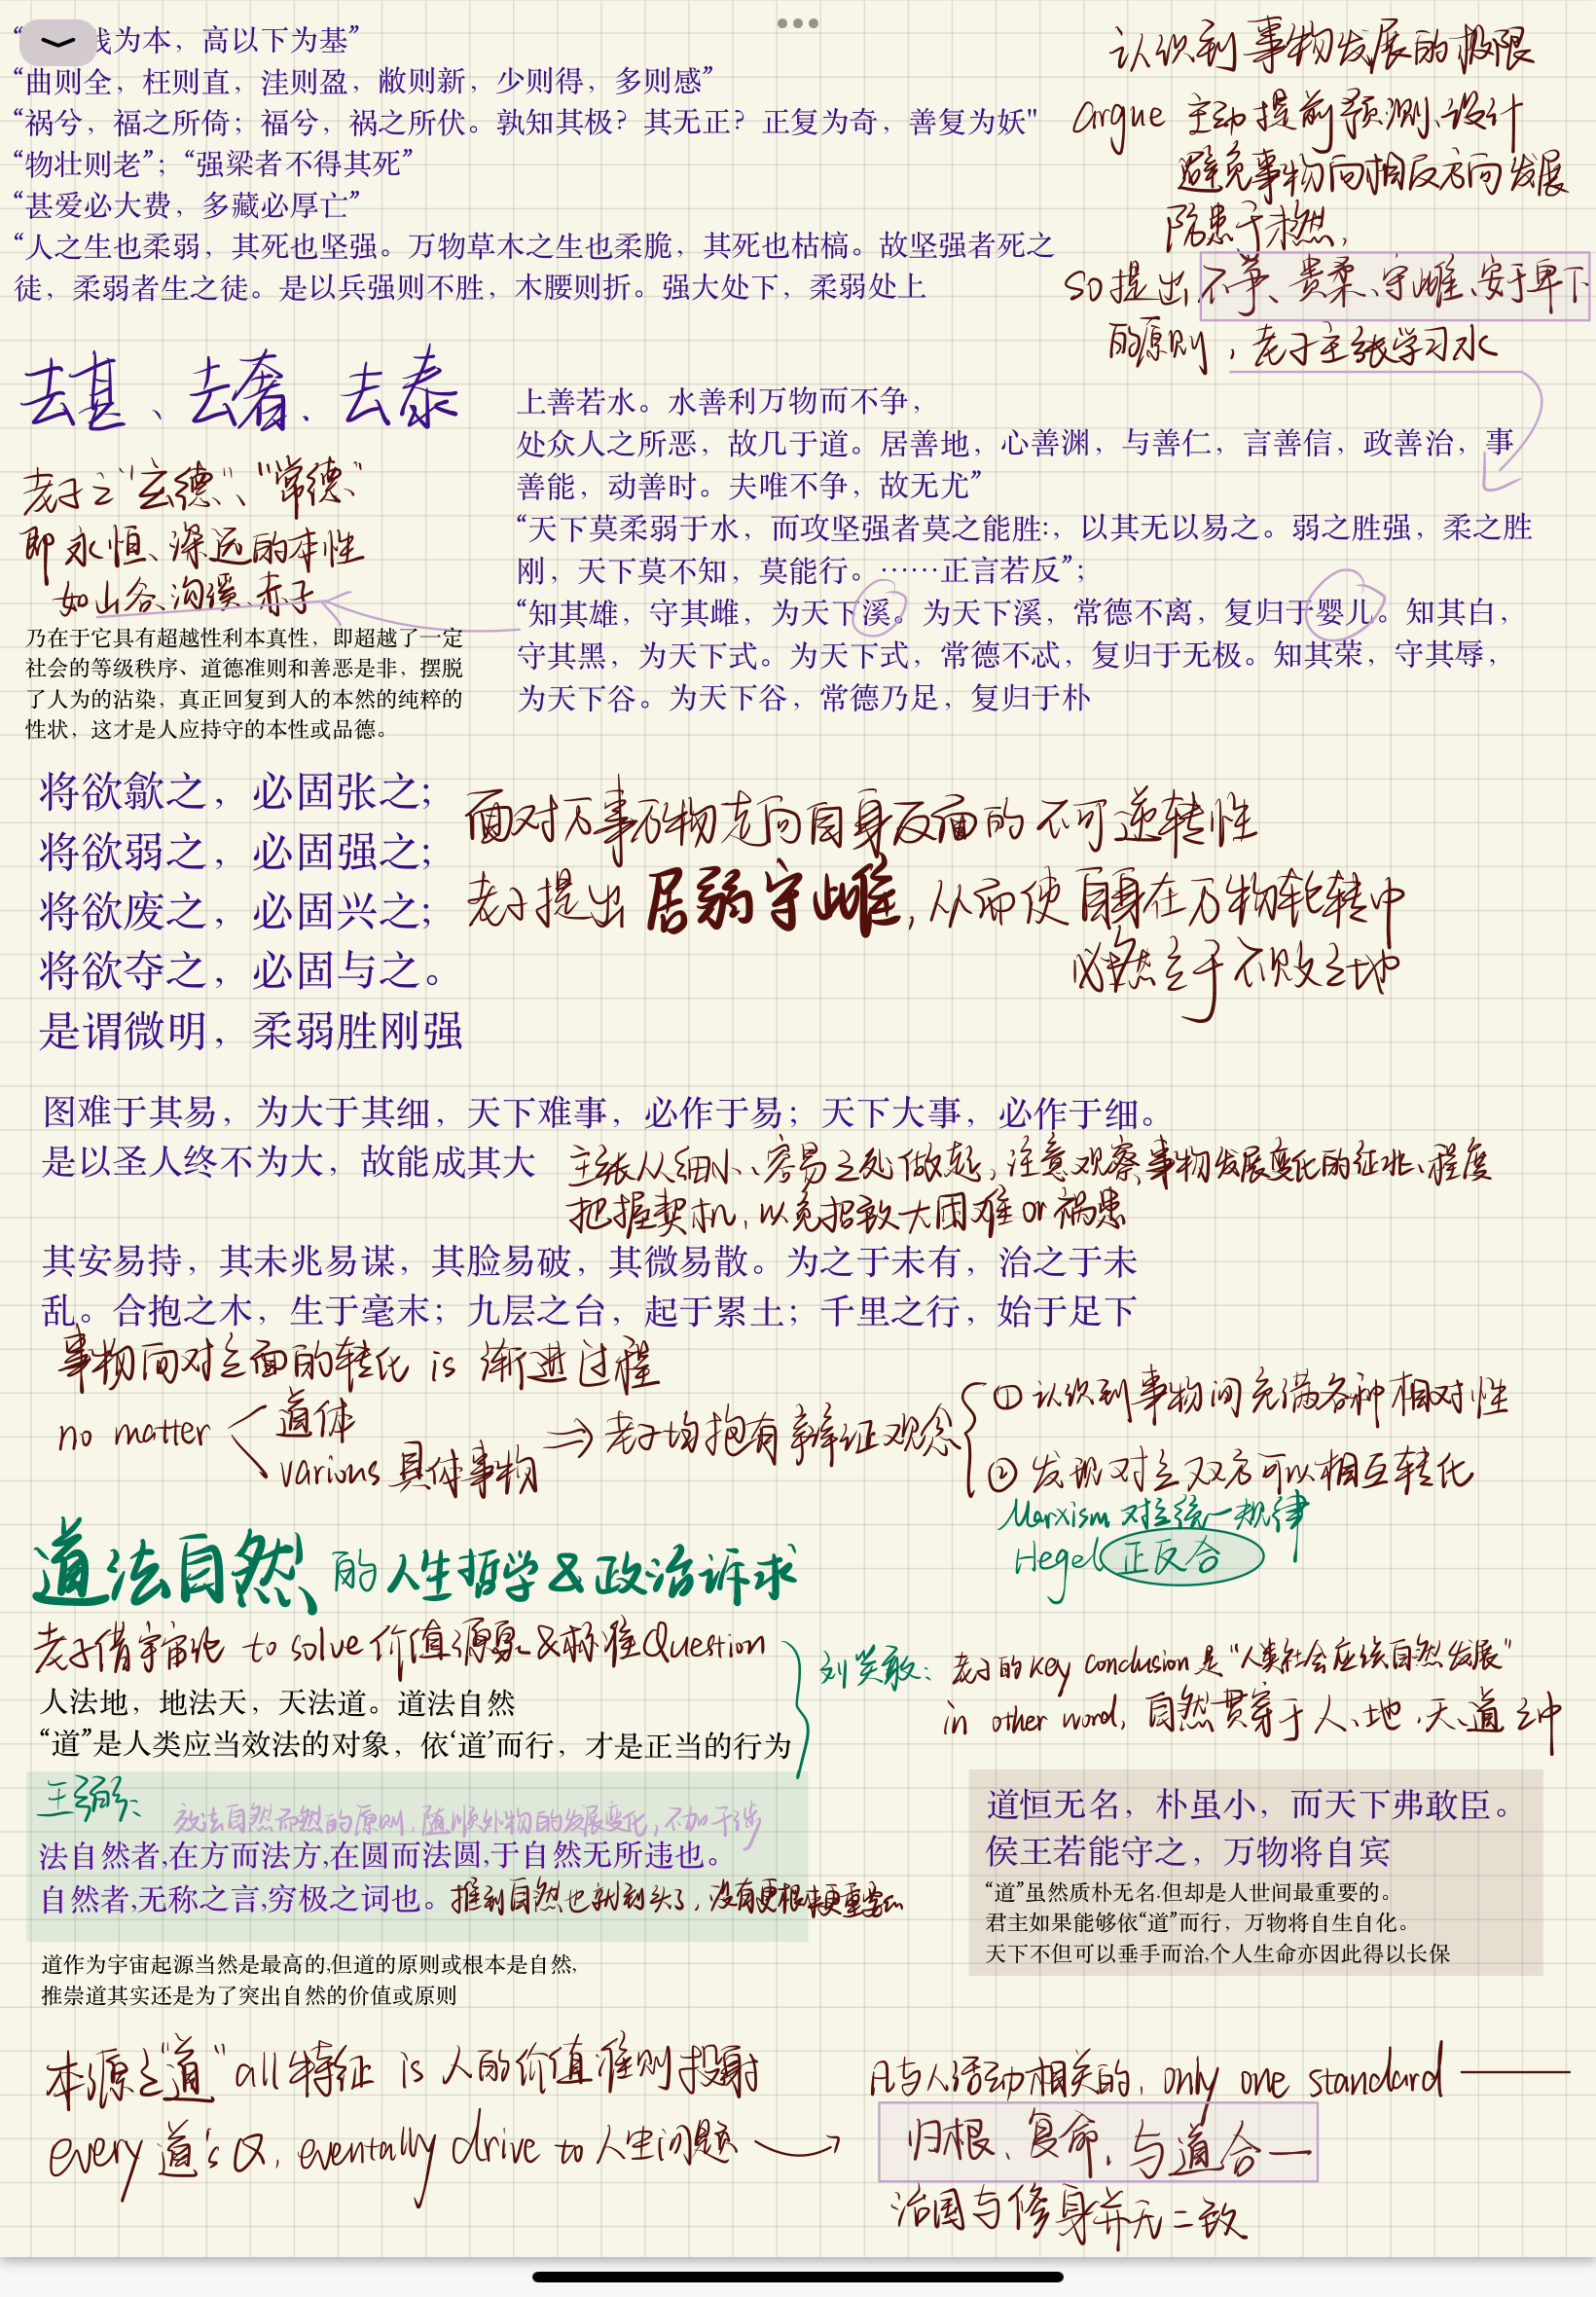 “ 贱为本，高以下为基”
“曲则全，枉则直，洼则盈，敝则新，少则得，多则感”
“祸兮，福之所倚；福兮，祸之所伏。孰知其极？其无正？正复为奇，善复为妖"
“物壮则老”；“强梁者不得其死”
“甚爱必大费，多藏必厚亡”
“人之生也柔弱，其死也坚强。万物草木之生也柔脆，其死也枯槁。故坚强者死之
徒，柔弱者生之徒。是以兵强则不胜，木腰则折。强大处下，柔弱处上
认识到事物发展的极限
argue 主动提前预测、设计
避免事物向相反方向发展
防患于未然，
so 提出 不争、贵柔、守雌、安于卑下
的原则，老子主张学习水
去甚、去奢、去泰
老子之“玄德”、“常德”
即永恒、深远的本性
如山谷、沟溪、赤子
乃在于它具有超越性利本真性，即超越了一定
社会的等级秩序、道德准则和善恶是非，摆脱
了人为的沾染，真正回复到人的本然的纯粹的
性状，这才是人应持守的本性或品德。
上善若水。水善利万物而不争，
处众人之所恶，故几于道。居善地，心善渊，与善仁，言善信，政善治，事
善能，动善时。夫唯不争，故无尤”
“天下莫柔弱于水，而攻坚强者莫之能胜:，以其无以易之。弱之胜强，柔之胜
刚，天下莫不知，莫能行。……正言若反”；
“知其雄，守其雌，为天下溪。为天下溪，常德不离，复归于婴儿。知其白，
守其黑，为天下式。为天下式，常德不忒，复归于无极。知其荣，守其辱，
为天下谷。为天下谷，常德乃足，复归于朴
将欲歙之，必固张之；
将欲弱之，必固强之；
将欲废之，必固兴之；
将欲夺之，必固与之。
是谓微明，柔弱胜刚强
面对万事万物走向自身反面的不可逆转性
老子提出 居弱守雌，从而使自身在万物轮转中
必然立于不败之地
图难于其易，为大于其细，天下难事，必作于易；天下大事，必作于细。
是以圣人终不为大，故能成其大
主张从细小、容易之处做起，注意观察事物发展变化的征兆、程度
把握契机，以免招致大困难 or 祸患
其安易持，其未兆易谋，其脸易破，其微易散。为之于未有，治之于未
乱。合抱之木，生于毫末；九层之台，起于累土；千里之行，始于足下
事物向对立面的转化 is 渐进过程
no matter
道体
various 具体事物
⇒ 老子均抱有辩证观念
① 认识到事物间充满各种相对性
② 发现对立双方可以相互转化
Marxism 对立统一规律
Hegel 正反合
道法自然 的人生哲学&政治诉求
老子借宇宙论 to solve 价值源泉&标准Question
人法地，地法天，天法道。道法自然
“道”是人类应当效法的对象，依‘道’而行，才是正当的行为
刘笑敢：老子的 key conclusion 是“人类社会应该自然发展”
in other word, 自然贯穿于人、地、天、道之中
王弼：
效法自然而然的原则，随顺外物的发展变化，不加干涉
法自然者,在方而法方,在圆而法圆,于自然无所违也。
自然者,无称之言,穷极之词也。推到自然也就到头了，没有更根本更重要的
道作为宇宙起源当然是最高的,但道的原则或根本是自然,
推崇道其实还是为了突出自然的价值或原则
道恒无名，朴虽小，而天下弗敢臣。
侯王若能守之，万物将自宾
“道”虽然质朴无名.但却是人世间最重要的。
君主如果能够依“道”而行，万物将自生自化。
天下不但可以垂手而治,个人生命亦因此得以长保
本源之“道” all 特征 is 人的价值准则投射
every 道's Q, eventually drive to 人生问题
凡与人活动相关的，only one standard ——
归根、复命、与道合一
治国与修身并无二致